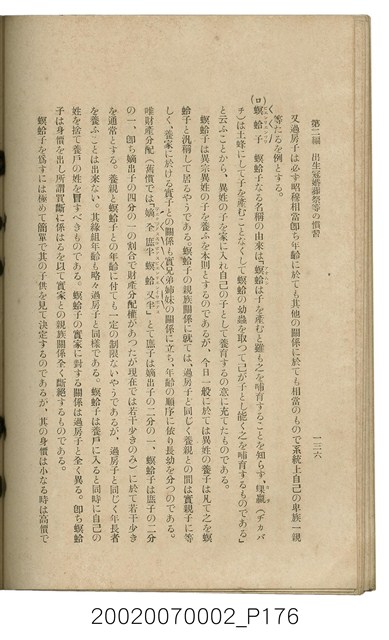 第二編　出生冠婚葬祭等の慣習
一三六
又過房子は必ず昭穆相當卽ち年齡に於ても其他の關係に於ても相當のもので系統上自己の卑族一親
等たるを例とする。
(ロ) 螟蛉子　螟蛉子なる名稱の由來は、螟蛉は子を產むと雖も之を哺育することを知らず、蜾蠃(ヂガバ
チ)は土蜂にして子を產むことなくして螟蛉の幼蟲を取つて己が子とし能く之を哺育するものである」
と云ふことから、異姓の子を家に入れ自己の子として養育するの意に充てたものである。
螟蛉子は異宗異姓の子を養ふを本則とするのであるが、今日一般に於ては異姓の養子は凡て之を螟
蛉子と汎稱して居るやうである。螟蛉子の親族關係に就ては、過房子と同じく養親との間は實親子に等
しく、養家に於ける實子との關係も實兄弟姉妹の關係に立ち、年齡の順序に依り長幼を分つのである。
唯財產分配(舊慣では「嫡全庶半螟蛉又半」とて庶子は嫡出子の二分の一、螟蛉子は庶子の二分
の一、卽ち嫡出子の四分の一の割合で財產分配權があつたが現在では若干少きのみ)に於て若干少き
を通常とする。養親と螟蛉子との年齡に付ても一定の制限ないやうであるが、過房子と同じく年長者
を養ふことは出來ない。其緣組年齡も略々過房子と同樣である。螟蛉子は養戶に入ると同時に自己の
姓を捨て養戶の姓を冒すべきものである。螟蛉子の實家に對する關係は過房子と全く異る。卽ち螟蛉
子は身價を出し所謂買斷に係はるを以て實家との親族關係全く斷絕するものである。
螟蛉子を爲すには極めて簡單で其の子供を見て決定するのであるが、其の身價は小なる時は高價で
20020070002_P176